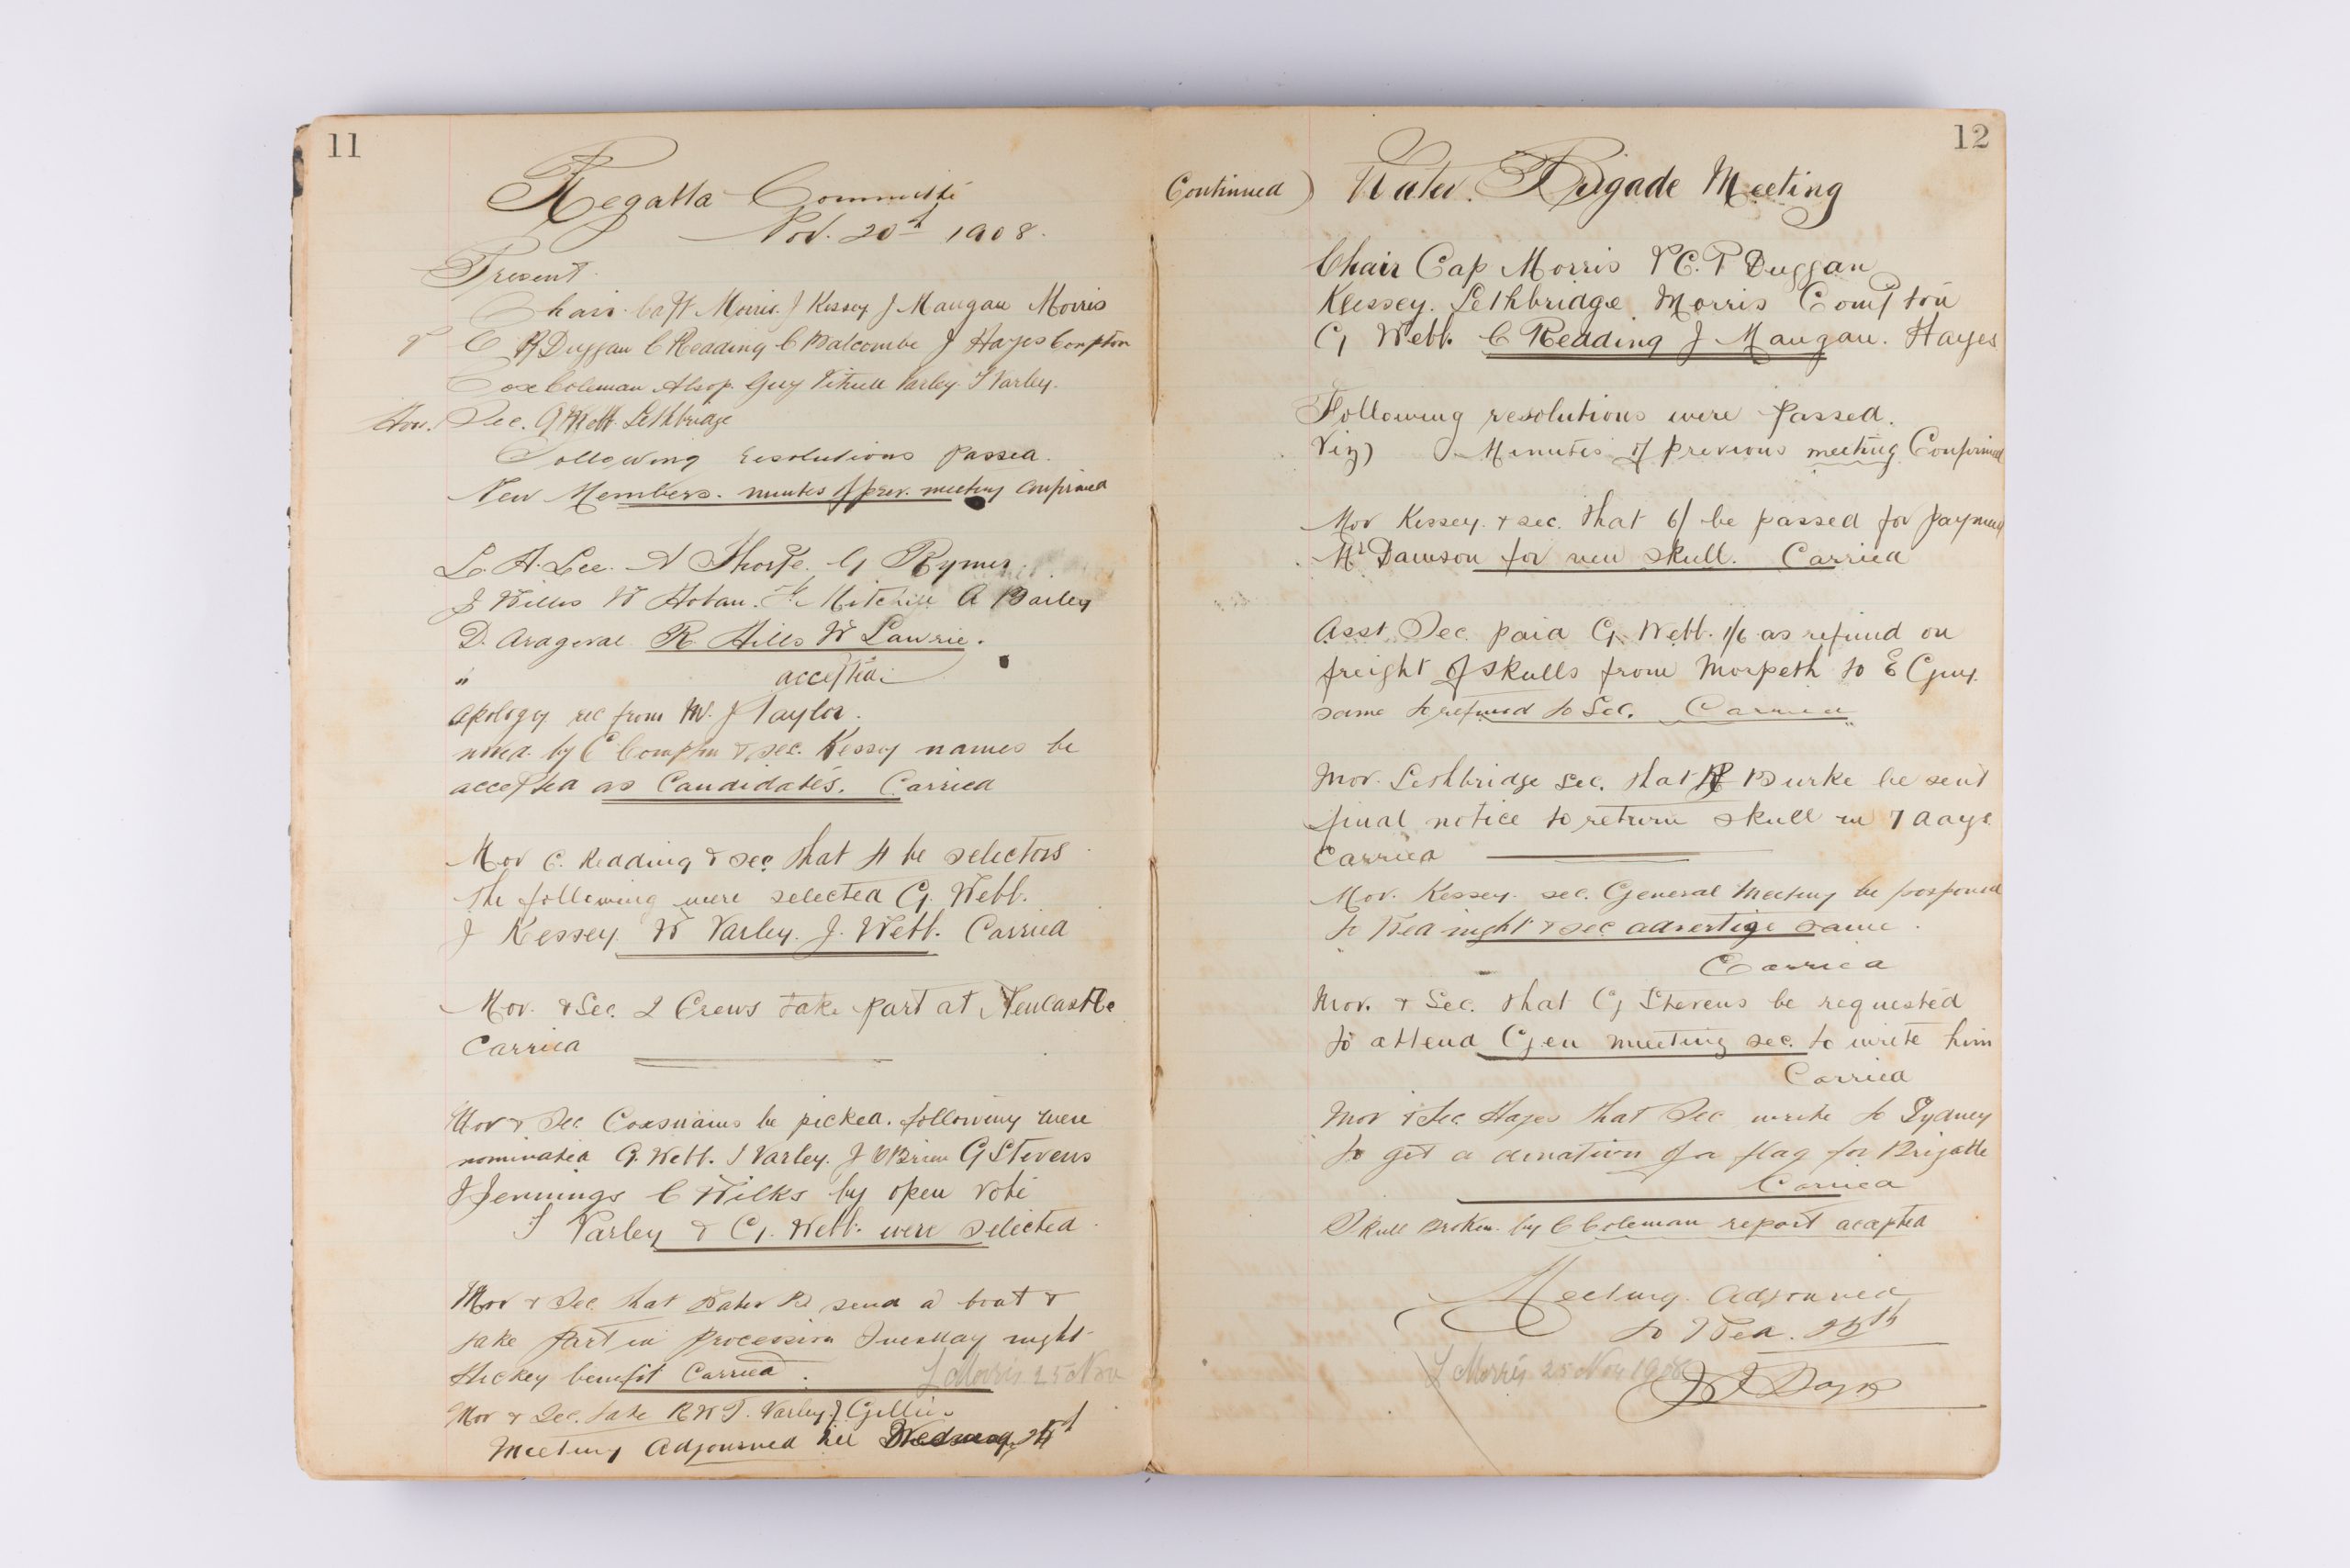 11
Regatta Committe
Nov. 20th 1908.
Present
Chair Capt Morris. J Kessey J Mangan Morris
C P Duggan C Reading C Balcombe J Hayes Compton
Cox Coleman Alsop. Guy Varley. T Varley.
Hon. Sec. G Webb Lethbridge
Following resolutions passed.
New Members. minutes of prev. meeting confirmed
L. A. Lee. A Thorpe. G Rymer
J Willis W Hoban. Mitchell A Bailey
D. R. Hills W Lawrie.
" accepted
Apology rec from W. J Taylor.
moved by C Compton & sec. Kessey names be
accepted as Candidates. Carried
Mov C. Redding & sec that 4 be selectors
the following were selected G. Webb.
J Kessey. W Varley. J. Webb. Carried
Mov. & Sec. 2 Crews take part at Newcastle
Carried
Mov & Sec Coxswains be picked. following were
nominated G. Webb. T Varley. J OBrien G Stevens
J Jennings C Wilks by open vote
T Varley & G. Webb. were selected.
Mov & Sec. that Water B send a boat &
take part in procession Tuesday night
Hickey benefit Carried.
L Morris 25 Nov
Mov & Sec. take R W T. Varley J Gillies
Meeting Adjourned till Wednesday 25th
12
Continued) Water. Brigade Meeting
Chair Cap Morris V C. P Duggan
Kessey. Lethbridge Morris Compton
G Webb. C Reading J Mangan. Hayes
Following resolutions were passed.
Viz) Minutes of previous meeting Confirmed
Mov Kessey. & sec. that 6/ be passed for payment
Mr Dawson for new skull. Carried
Asst. Sec. paid G. Webb. 1/6 as refund on
freight of skulls from Morpeth to E Guy.
same to refund to Sec. Carried
Mov. Lethbridge sec. that Burke be sent
final notice to return skull in 7 days
Carried
Mov. Kessey. sec. General Meeting be posponed
to Wed night & sec advertige same.
Carried
Mov. & Sec. that G Stevens be requested
to attend Gen meeting sec. to write him
Carried
Mov & Sec. Hayes that Sec write to Sydney
to get a donation of a flag for Brigade
Carried
Skull Broken. by C Coleman report accepted
Meeting. Adjourned
to Wed. 25th
L Morris 25 Nov 1908